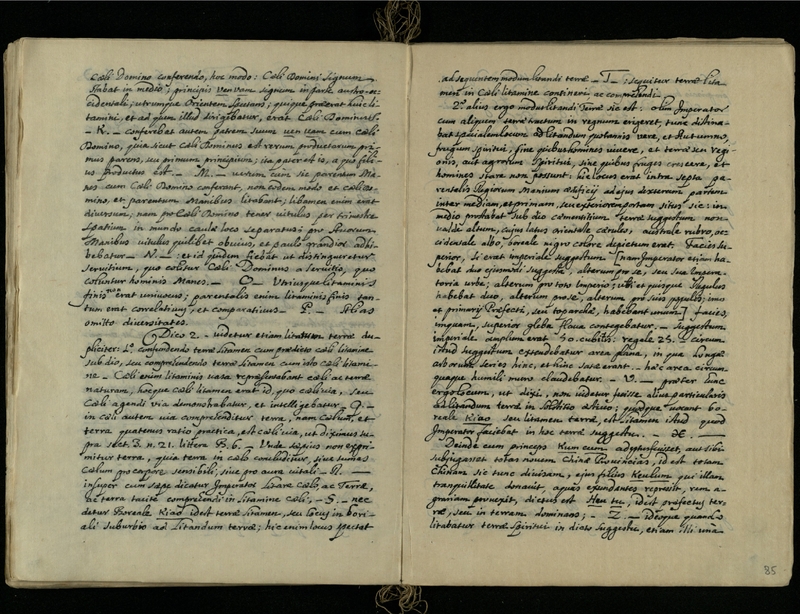 Cœli Domino conferendo, hoc modo: Cœli Domini signum
stabat in medio; principis Ven vam signum in parte austro-oc-
cidentali; utrumque Orientem spectans; quique præerat huic li-
tamini, et ad quem illud dirigebatur, erat Cœli Dominus.
– K. – conferebat autem patrem suum ven vam cum cœli
Domino, quia sicut Cœli Dominus est rerum productarum pri-
mus parens, seu primum principium; ita pater est is, a quo fili-
us productus est. – M. – verum cum sic parentum Ma-
nes cum Cœli Domino conferant, non eodem modo et cœli Do-
mino, et parentum Manibus litabant; libamen enim erat
diversum, nam pro Cœli Domino tener vitulus per trimestre
spatium in mundo caulæ loco separatus; pro suorum
Manibus vitulus quilibet obvius, et paulo grandior adhi-
bebatur – N. – : et id quidem fiebat ut distingueretur
servitium, quo colitur Cœli Dominus a servitio, quo
coluntur hominis Manes. – O. – Utriusque litaminis
finis non erat univocus; parentalis enim litaminis finis tan-
tum erat correlativus, et comparativus – P. –
omitto diversitates.
Dico 2. videtur etiam litamen terræ du-
pliciter: 1.º comprehendendo terræ litamen cum prædicto cœli litamine
sub dio, seu comprehendendo terræ litamen cum isto cœli litami-
ne. – Cœli enim litaminis vasa repræsentabant cœli ac terræ
naturam, hocque cœli litamen erat id, quo cœli via, seu
Cœli agendi via demonstrabatur, et intelligebatur. Q. –
in cœli autem via comprehenditur terra, nam cœlum, et
terra quatenus ratio practica, est cœli via, ut diximus su-
pra sect. 3. n. 21. littera B. 6. – Unde sæpius non expri-
mitur terra, quia terra in cœlo concluditur, sive sumas
cœlum pro corpore sensibili, sive pro aura vitali – R. –
insuper cum sæpe dicatur Imperator litare cœlo, ac Terræ,
ac terra tacite comprehendi in litamine cœli, – S. – nec
detur Boreale Kiao idest terræ litamen, seu locus in bori-
ali suburbio ad litandum terræ; hic enim locus spectat
ad sequentem modum litandi terræ – T – : sequitur terræ lita
men in cœli litamine contineri ac comprehendi.
2.us alius ergo modus litandi Terræ sic est: olim Imperator
cum aliquem terræ tractum in regnum erigeret, tunc distina-
bat specialem locum ad litandum postannis vere, et Autumno,
frugum spiritui, sine quibus homines vivere, et terræ seu regi-
onis, aut agrorum spiritui, sine quibus fruges crescere, et
homines stare non possunt: hic locus erat intra septa pa-
rentalis Regiorum Manium ædificij ad ejus dexteram partem
inter mediam, et primam, seu exteriorem portam situs sic: in
medio prostabat sub dio cæmentitium terræ suggestum non
valdi altum, cujus latus orientale cæruleo, australe rubro, oc-
cidensale albo, boreale nigro colore depictum erat. Facies su-
perior, si erat imperiale suggestum [nam Imperator etiam ha-
bebat duo ejusmodi suggesta, alterum pro se, seu sua Impera-
toria urbe; alterum pro toto imperio; ubi et quisque Regulus
habebat duo, alterum pro se, alterum pro suis populis; imo
et primarij Præfecti, seu toparchæ, habebant unum] facies,
inquam, superior gleba flava contegebatur. – suggestum
imperiale amplum erat 50. cubitis: regale 25. circum
istud suggestum extendebatur area plana, in qua longæ
arborum series hinc, et hinc satæ erant. – hæc area circum
quaque humili muro claudebatur. – V. – præter hunc
ergo locum, ut dixi, non videtur fuisse alius particularis
ad litandum terræ in solstitio æstivo; quodque vocant bo-
reale Kiao, seu litamen terræ, est litamen istud quod
Imperator faciebat in hoc terræ suggestu. – X. –
Deinde cum princeps Kum cum adeptus fuisset, aut sibi
subjugasset totas novem Chinæ Provincias, id est totam
Chinam sic tunc divisam, ejus filius Keulum qui illam
tranquillitate donavit aquas exundantes repressit, rem a-
grariam provexit, dictus est Heu tu, idest præfectus ter-
ræ, seu in terram dominans; – Z – ideoque quando
litabatur terræ spiritui in dicto suggestu, etiam illi una
85